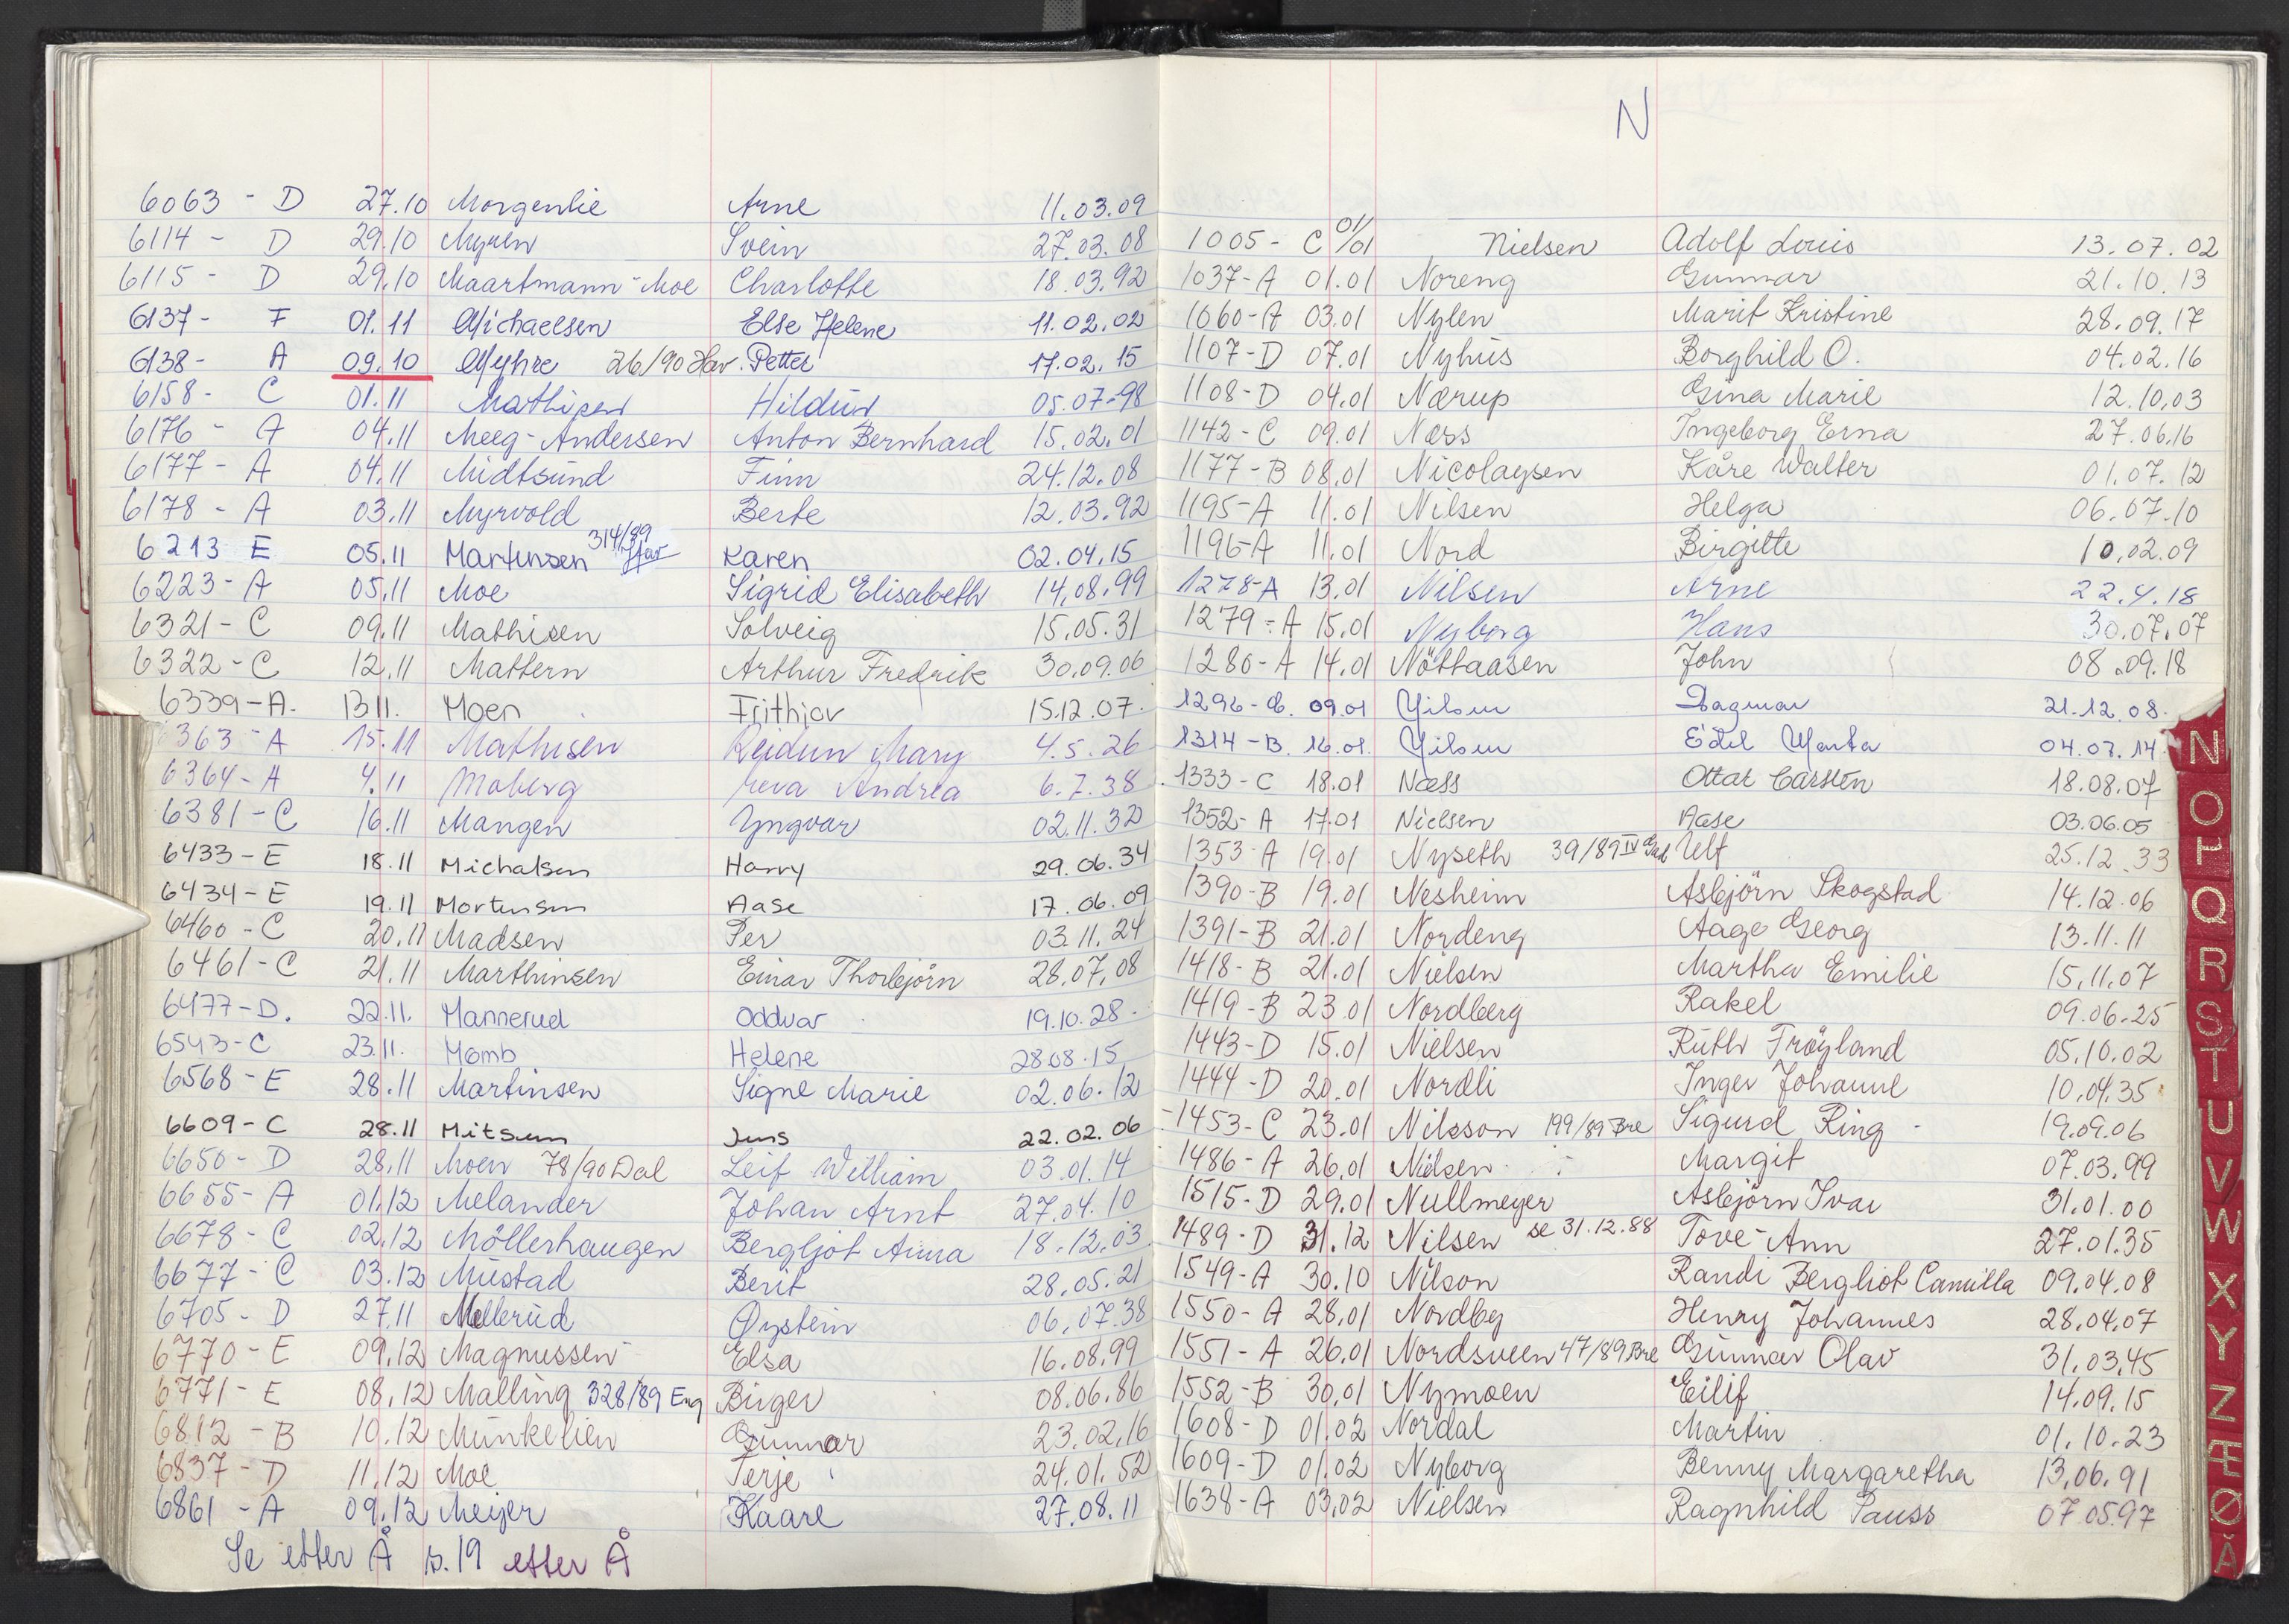 6063 - D 27.10 Morgenlie Arne 11.03.09
6114 - D 29.10 Myren Svein 27.03.08
6115 - D 29.10 Maartmann-Moe Charlotte 18.03.92
6137 - F 01.11 Michaelsen Else Helene 11.02.02
6138 - A 09.10 Myhre 26/90 Hav. Petter 17.02.15
6158 - C 01.11 Mathisen Hildur 05.07.98
6176 - A 04.11 Meeg-Andersen Anton Bernhard 15.02.01
6177 - A 04.11 Midtsund Finn 24.12.08
6178 - A 03.11 Myrvold Berte 12.03.92
6213 E 05.11 Martinsen 314/89 Hav Karen 02.04.15
6223 - A 05.11 Moe Sigrid Elisabeth 14.08.99
6321 - C 09.11 Mathisen Solveig 15.05.31
6322 - C 12.11 Mattern Arthur Fredrik 30.09.06
6339 - A. 13.11. Moen Frithjov 15.12.07.
6363 - A 15.11 Mathisen Reidun Mary 4.5.26
6364 - A 4.11 Moberg Andrea 6.7.38
6381 - C 16.11 Mangen Yngvar 02.11.32
6433 - E 18.11 Michalsen Harry 29.06.34
6434 - E 19.11 Mortensen Aase 17.06.09
6460 - C 20.11 Madsen Per 03.11.24
6461 - C 21.11 Marthinsen Einar Thorbjörn 28.07.08
6477 - D. 22.11. Mannerud Oddvar 19.10.28.
6543 - C 23.11. Momb Helene 28.08.15
6568 - E 28.11 Martinsen Signe Marie 02.06.12
6609 - C 28.11 Mitsem Jens 22.02.06
6650 - D 28.11 Moen 78/90 Dal Leif William 03.01.14
6655 - A 01.12 Melander Johan Arnt 27.04.10
6678 - C 02.12 Möllerhaugen Bergljot Anna 18.12.03
6677 - C 03.12 Mustad Berit 28.05.21
6705 - D 27.11 Mellerud Øystein 06.07.38
6770 - E 09.12 Magnussen Elsa 16.08.99
6771 - E 08.12 Malling 328/89 Eng Birger 08.06.86
6812 - B 10.12 Munkelien Gunnar 23.02.16
6837 - D 11.12 Moe Terje 24.01.52
6861 - A 09.12 Meijer Kaare 27.08.11
Se etter Å s.19 etter Å
N
1005 - C 01/01 Nielsen Adolf Louis 13.07.02
1037-A 01.01 Noreng Gunnar 21.10.13
1060-A 03.01 Nylen Marit Kristine 28.09.17
1107-D 07.01 Nyhus Borghild O. 04.02.16
1108-D 04.01 Nærup Gina Marie 12.10.03
1142-C 09.01 Næss Ingeborg Erna 27.06.16
1177-B 08.01 Nicolaysen Kåre Walter 01.07.12
1195-A 11.01 Nilsen Helga 06.07.10
1196-A 11.01 Nord Birgitte 10.02.09
1278-A 13.01 Nilsen Arne 22.4.18
1279-A 15.01 Nyborg Hans 30.07.07
1280-A 14.01 Nöttaasen John 08.09.18
1296 - 09.01 Nilsen Dagmar 21.12.08.
1314-B. 16.01. Nilsen Edel Marta 04.07.14
1333-C 18.01 Næss Ottar Carsten 18.08.07
1352-A 17.01 Nielsen Aase 03.06.05
1353-A 19.01 Nyseth 39/89 IV Gul Ulf 25.12.33
1390-B 19.01 Nesheim Asbjörn Skogstad 14.12.06
1391-B 21.01 Nordeng Aage Georg 13.11.11
1418-B 21.01 Nielsen Martha Emilie 15.11.07
1419-B 23.01 Nordberg Rakel 09.06.25
1443-D 15.01 Nielsen Ruth Tröyland 05.10.02
1444-D 20.01 Nordli Inger Johanne 10.04.35
1453-C 23.01 Nilsson 199/89 Bre Sigurd Ring 19.09.06
1486-A 26.01 Nielsen Margit 07.03.99
1515-D 29.01 Nullmeyer Asbjörn Ivar 31.01.00
1489-D 31.12 Nilsen se 31.12.88 Tove-Ann 27.01.35
1549-A 30.10 Nilson Randi Bergliot Camilla 09.04.08
1550-A 28.01 Nordby Henry Johannes 28.04.07
1551-A 26.01 Nordsveen 47/89 Bre Gunnar Olav 31.03.45
1552-B 30.01 Nymoen Eilif 14.09.15
1608-D 01.02 Nordal Martin 01.10.23
1609-D 01.02 Nyborg Benny Margaretha 13.06.91
1638-A 03.02 Nielsen Ragnhild Pauss 07.05.97
N
O
P
Q
R
S
T
U
V
W
X
Y
Z
Æ
Ø
Å